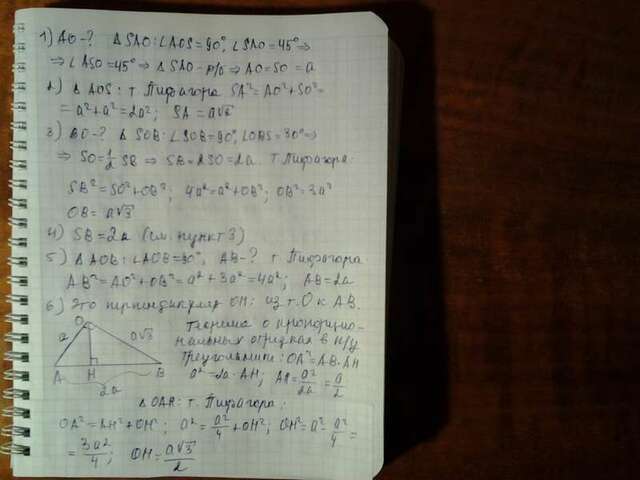 1) AO-? Δ SAO: ∠AOS=90°, ∠SAO=45° ⇒
⇒ ∠ASO=45° ⇒ Δ SAO - р/б ⇒ AO=SO=a
2) Δ AOS: т. Пифагора SA²=AO²+SO²=
= a²+a²=2a²; SA=a√2
3) BO-? Δ SOB: ∠SOB=90°, ∠OBS=30° ⇒
⇒ SO=½ SB ⇒ SB=2SO=2a. т. Пифагора:
SB²=SO²+OB²; 4a²=a²+OB²; OB²=3a²
OB=a√3
4) SB=2a (см. пункт 3)
5) Δ AOB: ∠AOB=90°, AB-? т. Пифагора
AB²=AO²+OB²=a²+3a²=4a²; AB=2a
6) Это перпендикуляр OH: из т. O к AB.
O
a
a√3
A H B
2a
Теорема о пропорцио-
нальных отрезках в п/у
треугольнике: OA²=AB·AH
a²=2a·AH; AH=a²/2a=a/2
Δ OAH: т. Пифагора:
OA²=AH²+OH²; a²=a²/4+OH²; OH²=a²-a²/4=
=3a²/4; OH=a√3/2